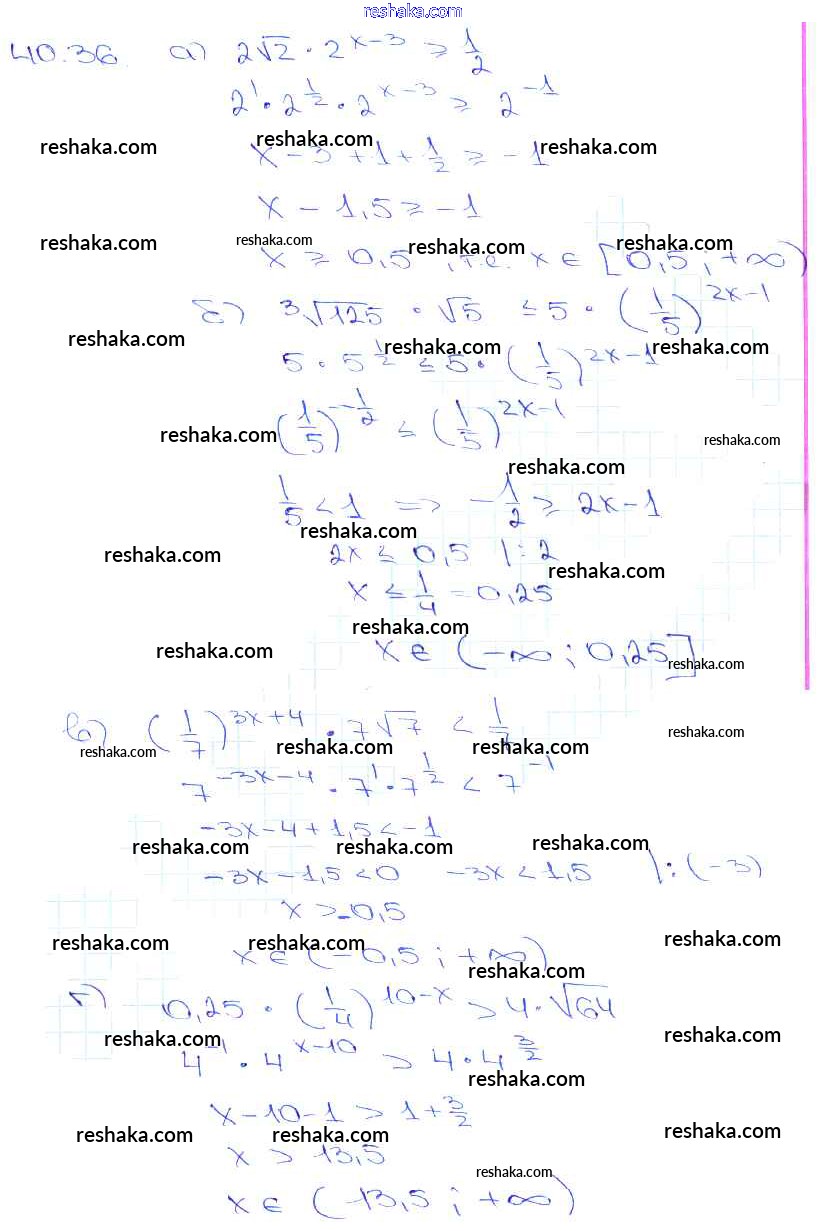 reshaka.com
40.36. а) 2√2 · 2^(x-3) ≥ 1/2
2^1 · 2^(1/2) · 2^(x-3) ≥ 2^(-1)
reshaka.com reshaka.com reshaka.com
x - 3 + 1 + 1/2 ≥ -1
x - 1,5 ≥ -1
reshaka.com reshaka.com reshaka.com reshaka.com
x ≥ 0,5 , т.е. x ∈ [0,5 ; +∞)
б) ³√125 · √5 ≤ 5 · (1/5)^(2x-1)
reshaka.com reshaka.com reshaka.com
5 · 5^(1/2) ≤ 5 · (1/5)^(2x-1)
(1/5)^(-1/2) ≤ (1/5)^(2x-1)
reshaka.com reshaka.com
reshaka.com
1/5 < 1 => -1/2 ≥ 2x - 1
reshaka.com
2x ≤ 0,5 |: 2
reshaka.com reshaka.com
x ≤ 1/4 = 0,25
reshaka.com
x ∈ (-∞ ; 0,25]
reshaka.com reshaka.com
в) (1/7)^(3x+4) · 7√7 < 1/7
reshaka.com reshaka.com reshaka.com reshaka.com
7^(-3x-4) · 7^1 · 7^(1/2) < 7^(-1)
-3x - 4 + 1,5 < -1
reshaka.com reshaka.com reshaka.com
-3x - 1,5 < 0 -3x < 1,5 |: (-3)
x > -0,5
reshaka.com reshaka.com reshaka.com
x ∈ (-0,5 ; +∞)
reshaka.com
г) 0,25 · (1/4)^(10-x) > 4 · √64
reshaka.com reshaka.com
4^(-1) · 4^(x-10) > 4 · 4^(3/2)
reshaka.com
x - 10 - 1 > 1 + 3/2
reshaka.com reshaka.com reshaka.com
x > 13,5
reshaka.com
x ∈ (13,5 ; +∞)